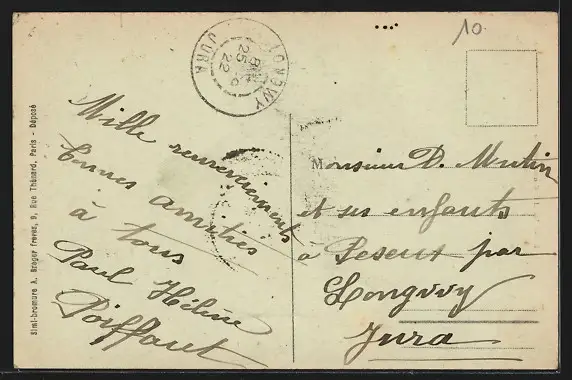 Simi-bromure A. Breger frères, 9, Rue Thénard, Paris - Déposé
LONGWY
25
22
JURA
10
Mille remerciements
bonnes amitiés
à tous
Paul Hélène
Poiffaut
Monsieur P. Mutin
et ses enfants
à Peseux par
Longwy
Jura